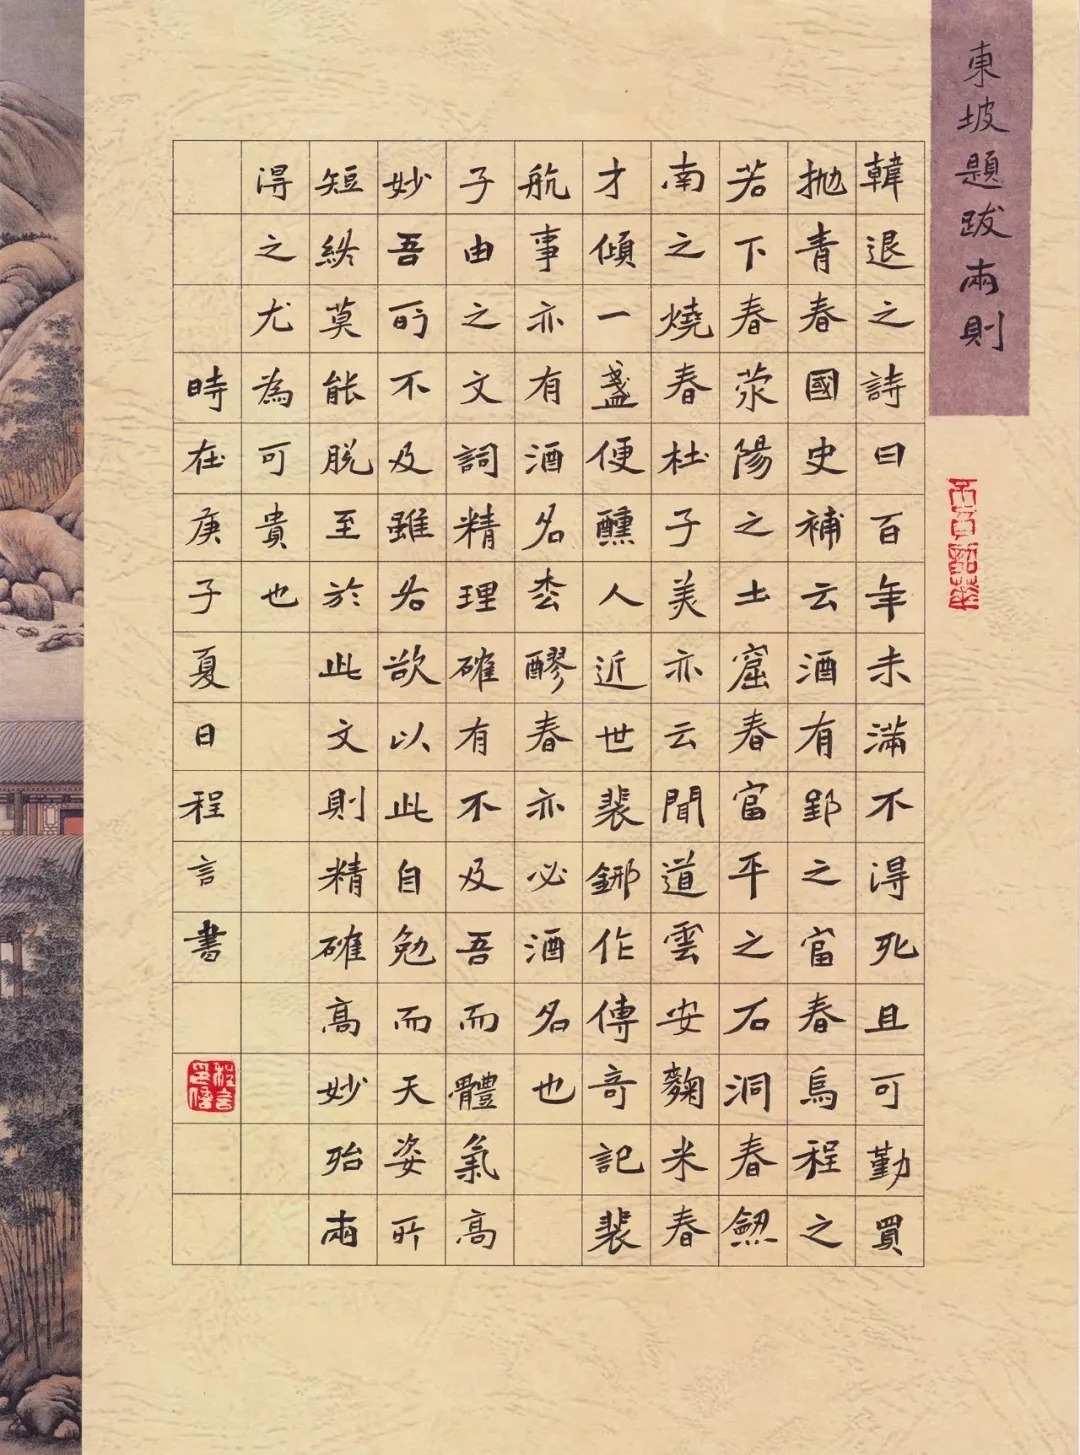 東坡題跋兩則
韓退之詩曰百年未滿不得死且可勤買
拋青春國史補云酒有郢之富春烏程之
若下春滎陽之土窟春富平之石洞春劔
南之燒春杜子美亦云聞道雲安麴米春
才傾一盞便醺人近世裴鉶作傳奇記裴
航事亦有酒名松醪春亦必酒名也
子由之文詞精理確有不及吾而體氣高
妙吾所不及雖各欲以此自勉而天姿所
短終莫能脫至於此文則精確高妙殆兩
得之尤為可貴也
時在庚子夏日程言書